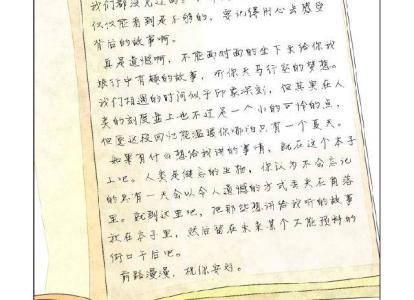 我们都没见过面
仅仅能看到是不够的，要记得用心去感受
背后的故事啊。
真是遗憾啊，不能面对面的坐下来给你我
旅行中有趣的故事，听你天马行空的梦想。
我们相遇的时间似乎印象深刻，但其实在人
类的刻度盘上也不过是一个小的可怜的点，
但愿这段回忆能温暖你哪怕只有一个夏天。
如果有什么想给我讲的事情，就在这个本子
上吧。人类是健忘的生物，你认为不会忘记
的总有一天会以令人遗憾的方式丢失在角落
里。就到这里吧，把那些想讲给我听的故事
放在本子里，然后留在未来某个不能预料的
街口于后吧。
前路漫漫，祝你安好。